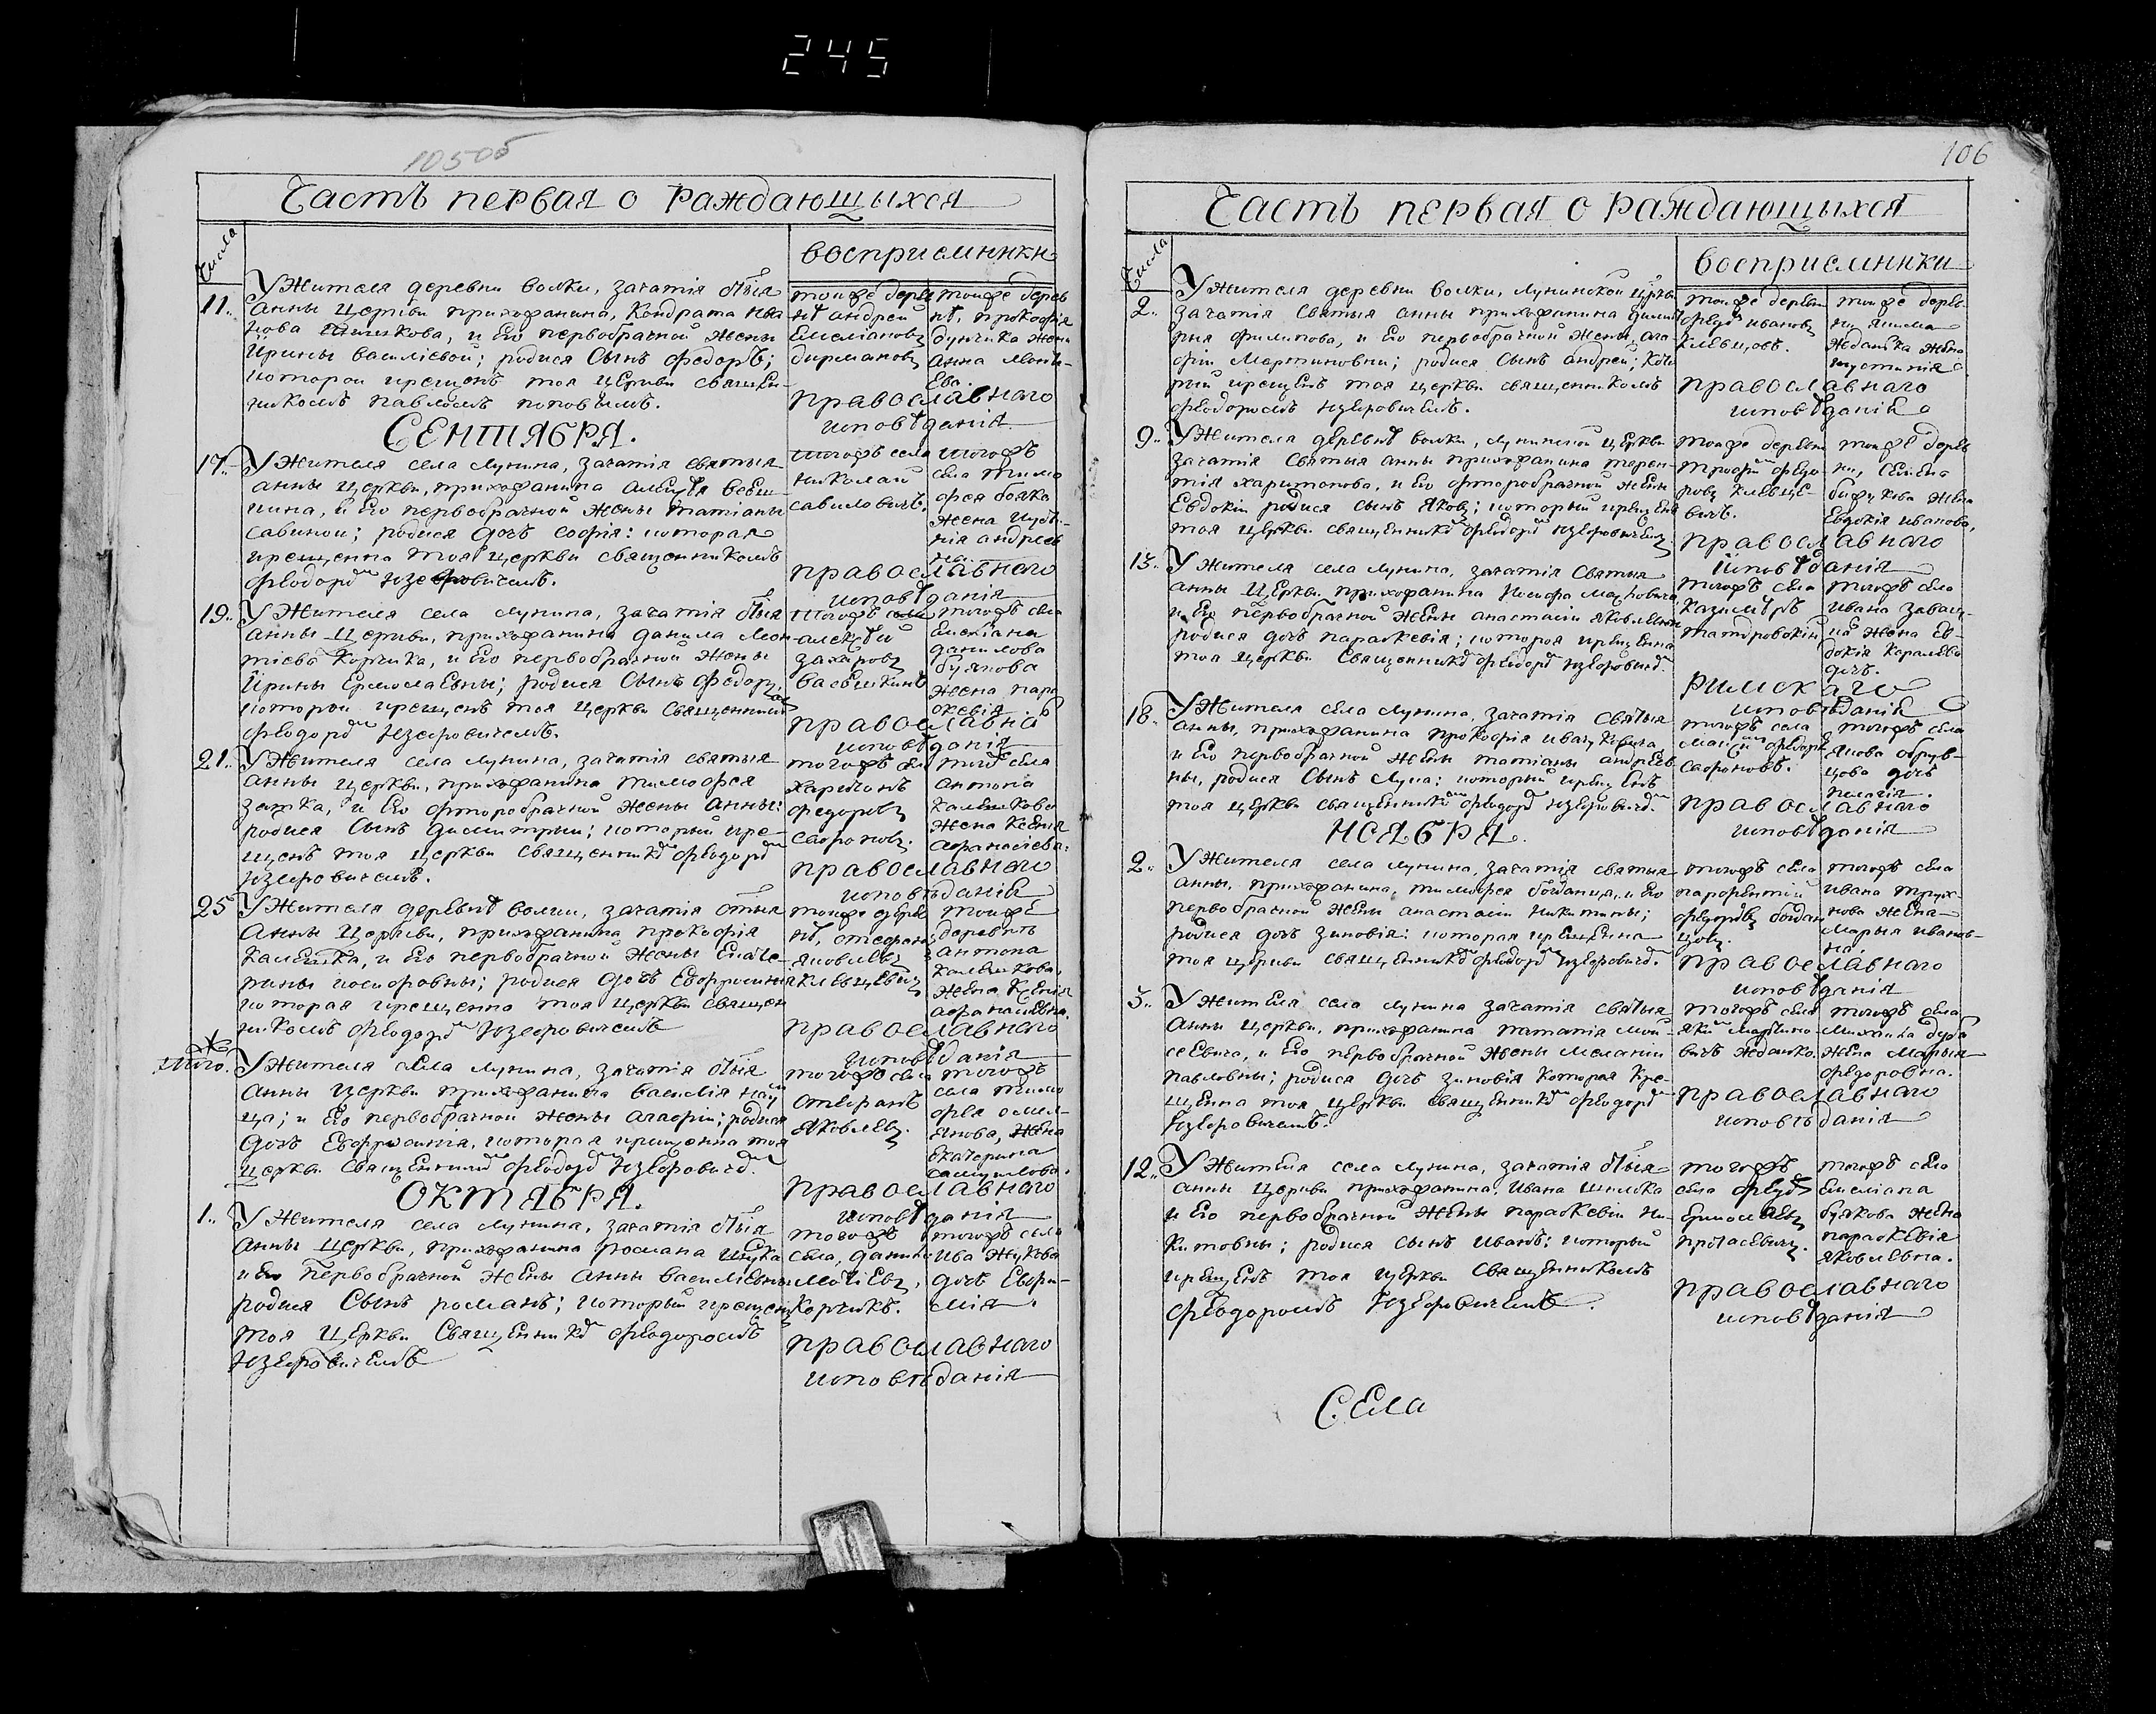 245
105об
Часть первая о раждающыхся
Числа
восприемники
11.. У Жителя деревни волки, зачатія стыя
анны церкви прихожанина, Кондрата Ива
нова и Его первобрачной Жены
Ирины василіевой; родися Сынъ Федоръ;
которой крещенъ тоя церкви священ-
никомъ павломъ поповымъ.
тояже дерев
нѣ андрей
Емеліановъ
тояже дерев
нѣ, прокофія
жена
анна
православнаго
исповѣданія.
СЕНТЯБРЯ.
17.. У Жителя села лунина, зачатія святыя
анны церкви, прихожанина
и Его первобрачной Жены татіаны
савиной; родися дочъ софія: которая
крещенна тоя церкви священникомъ
феодоромъ юзефовичемъ.
тогожъ села
николай
савиловичъ.
тогожъ
села тимо
фея
Жена
андреев
на.
православнаго
исповѣданія
19.. У Жителя села лунина, зачатія стыя
анны церкви, прихожанина данила Леон
тіева Корчика, и Его первобрачной Жены
Ирины Ермолаевны; родися Сынъ Федоръ;
которой крещенъ тоя церкви священникомъ
феодоромъ юзефовичемъ.
тогожъ села
алексѣй
захаровъ
тогожъ села
Емеліана
данилова
буякова
жена пара
скевія
православнаго
исповѣданія
21.. У Жителя села лунина, зачатія святыя
анны церкви, прихожанина тимофея
и Его фторобрачной Жены анны:
родися Сынъ димитрыи; который кре-
щенъ тоя церкви священникомъ феодоромъ
юзефовичемъ.
тогожъ села
харитонъ
федоровъ
сафоновъ.
тогожъ села
антона
калешкова
жена ксенія
афанасіева.
православнаго
исповѣданія
25 У Жителя деревнѣ волки, зачатія стыя
Анны Церкви, прихожанина прокофія
калешка, и Его первобрачной Жены Екате-
рины никифоровны; родися Дочъ Евфросинія
которая крещенна тоя церкви священ
никомъ феодоромъ юзефовичемъ
тояже дерев
нѣ, стефанъ
яковлевъ
клевцевичъ
тояже
деревнѣ
антона
калешкова,
жена Ксенія
афанасіевна.
православнаго
исповѣданія
того. У Жителя села лунина, зачатія стыя
анны церкви прихожанина василія
и Его первобрачной жены агафіи; родися
дочъ Евфросинія, которая крещенна тоя
церкви священникомъ феодоромъ юзефовичемъ.
тогожъ села
стефанъ
яковлевъ.
тогожъ
села тимо
фея
жена
екатерина
самуилова.
православнаго
исповѣданія
ОКТЯБРЯ.
1.. У Жителя села лунина, зачатія стыя
анны церкви, прихожанина романа
и Его первобрачной Жены анны василіевны
родися Сынъ романъ; который крещенъ
тоя церкви священникомъ феодоромъ
юзефовичемъ
тогожъ
села, данило
Корчикъ.
тогожъ села
Ива Жукова
дочъ Евфи-
мія.
православнаго
исповѣданія
106
Часть первая о раждающыхся
Числа
восприемники
2.. У Жителя деревни волки, лунинской церкви
зачатія святыя анны прихожанина
филипова, и Его первобрачной жены, ага
фіи Мартиновни; родися Сынъ андрей; кото
рый крещенъ тоя церкви священникомъ
феодоромъ юзефовичемъ.
тояже деревни
федоръ ивановъ
клевцовъ.
тояже дерев-
ни якима
Жданька жена
іустинія
православнаго
исповѣданія
9.. У Жителя деревнѣ волки, лунинской церкви
зачатія святыя анны прихожанина терен-
тія харитонова, и Его фторобрачной жены
Евдокіи родися сынъ яковъ; который крещенъ
тоя церкви священникомъ феодоромъ юзефовичемъ.
тояже деревни
трофимъ федо-
ровъ клевце-
вичъ.
тояже дерев
ни, семена
жена
Евдокія иванова,
православнаго
исповѣданія
13.. У Жителя села лунина, зачатія святыя
анны церкви прихожанина Иосифа
и Его первобрачной жены анастасіи яковлевны
родися дочъ параскевія; которая крещенна
тоя церкви священникомъ феодоромъ юзефовичемъ.
тогожъ села
казимѣръ
тогожъ села
ивана
жена Ев-
докія
дочъ.
римскаго
исповѣданія
18.. У Жителя села лунина, зачатія святыя
анны, прихожанина прокофія
и Его первобрачной жены татіаны андреев
ны, родися Сынъ Лука: который крещенъ
тоя церкви священникомъ феодоромъ юзефовичемъ.
тогожъ села
федоровъ
сафоновъ.
тогожъ села
якова
дочъ
пелагія.
православнаго
исповѣданія
НОЯБРЯ.
2.. У Жителя села лунина, зачатія святыя
анны, прихожанина, тимофея богданца, и Его
первобрачной жены анастасіи никитины;
родися дочъ зиновія: которая крещенна
тоя церкви священникомъ феодоромъ юзефовичемъ.
тогожъ села
парфентій
федоровъ богдан
цовъ.
тогожъ села
ивана трух-
нова жена
марыя иванов-
на.
православнаго
исповѣданія
5.. У Жителя села лунина зачатія святыя
анны церкви, прихожанина Мои-
сеевича, и Его первобрачной жены меланіи
павловны; родися дочъ зиновія которая кре-
щенна тоя церкви священникомъ феодоромъ
юзефовичемъ.
тогожъ села
якимъ Мартино-
вичъ жданько.
тогожъ села
михаила дуба
жена марыя
федоровна.
православнаго
исповѣданія
12.. У Жителя села лунина, зачатія стыя
анны церкви прихожанина, ивана шишка
и Его первобрачной жены параскевіи ни-
китовны; родися сынъ иванъ; который
крещенъ тоя церкви священникомъ
феодоромъ юзефовичемъ.
тогожъ
села федоръ
Ермолаевъ
протасевичъ.
тогожъ села
Емеліана
буякова жена
параскевія
яковлевна.
православнаго
исповѣданія
Села